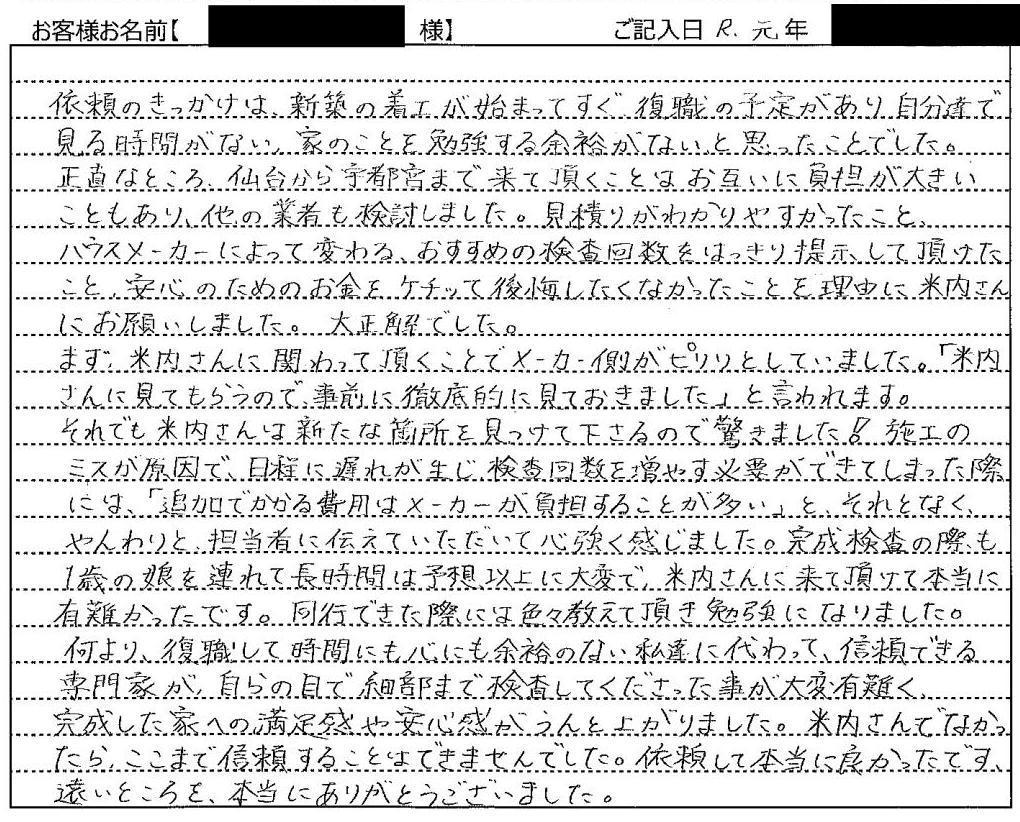 お客様お名前【 様】 ご記入日 R. 元年
依頼のきっかけは、新築の着工が始まってすぐ、復職の予定があり自分達で
見る時間がない、家のことを勉強する余裕がないと思ったことでした。
正直なところ、仙台から宇都宮まで来て頂くことはお互いに負担が大きい
こともあり、他の業者も検討しました。見積りがわかりやすかったこと、
ハウスメーカーによって変わる、おすすめの検査回数をはっきり提示して頂けた
こと、安心のためのお金をケチッて後悔したくなかったことを理由に米内さん
にお願いしました。大正解でした。
まず、米内さんに関わって頂くことでメーカー側がピリリとしていました。「米内
さんに見てもらうので、事前に徹底的に見ておきました」と言われます。
それでも米内さんは新たな箇所を見つけて下さるので驚きました!! 施工の
ミスが原因で、日程に遅れが生じ、検査回数を増やす必要ができてしまった際
には、「追加でかかる費用はメーカーが負担することが多い」と、それとなく、
やんわりと、担当者に伝えていただいて心強く感じました。完成検査の際も
1歳の娘を連れて長時間は予想以上に大変で、米内さんに来て頂けて本当に
有難かったです。同行できた際には色々教えて頂き勉強になりました。
何より、復職して時間にも心にも余裕のない私達に代わって、信頼できる
専門家が、自らの目で細部まで検査してくださった事が大変有難く、
完成した家への満足感や安心感がうんと上がりました。米内さんでなかっ
たら、ここまで信頼することはできませんでした。依頼して本当に良かったです、
遠いところを、本当にありがとうございました。